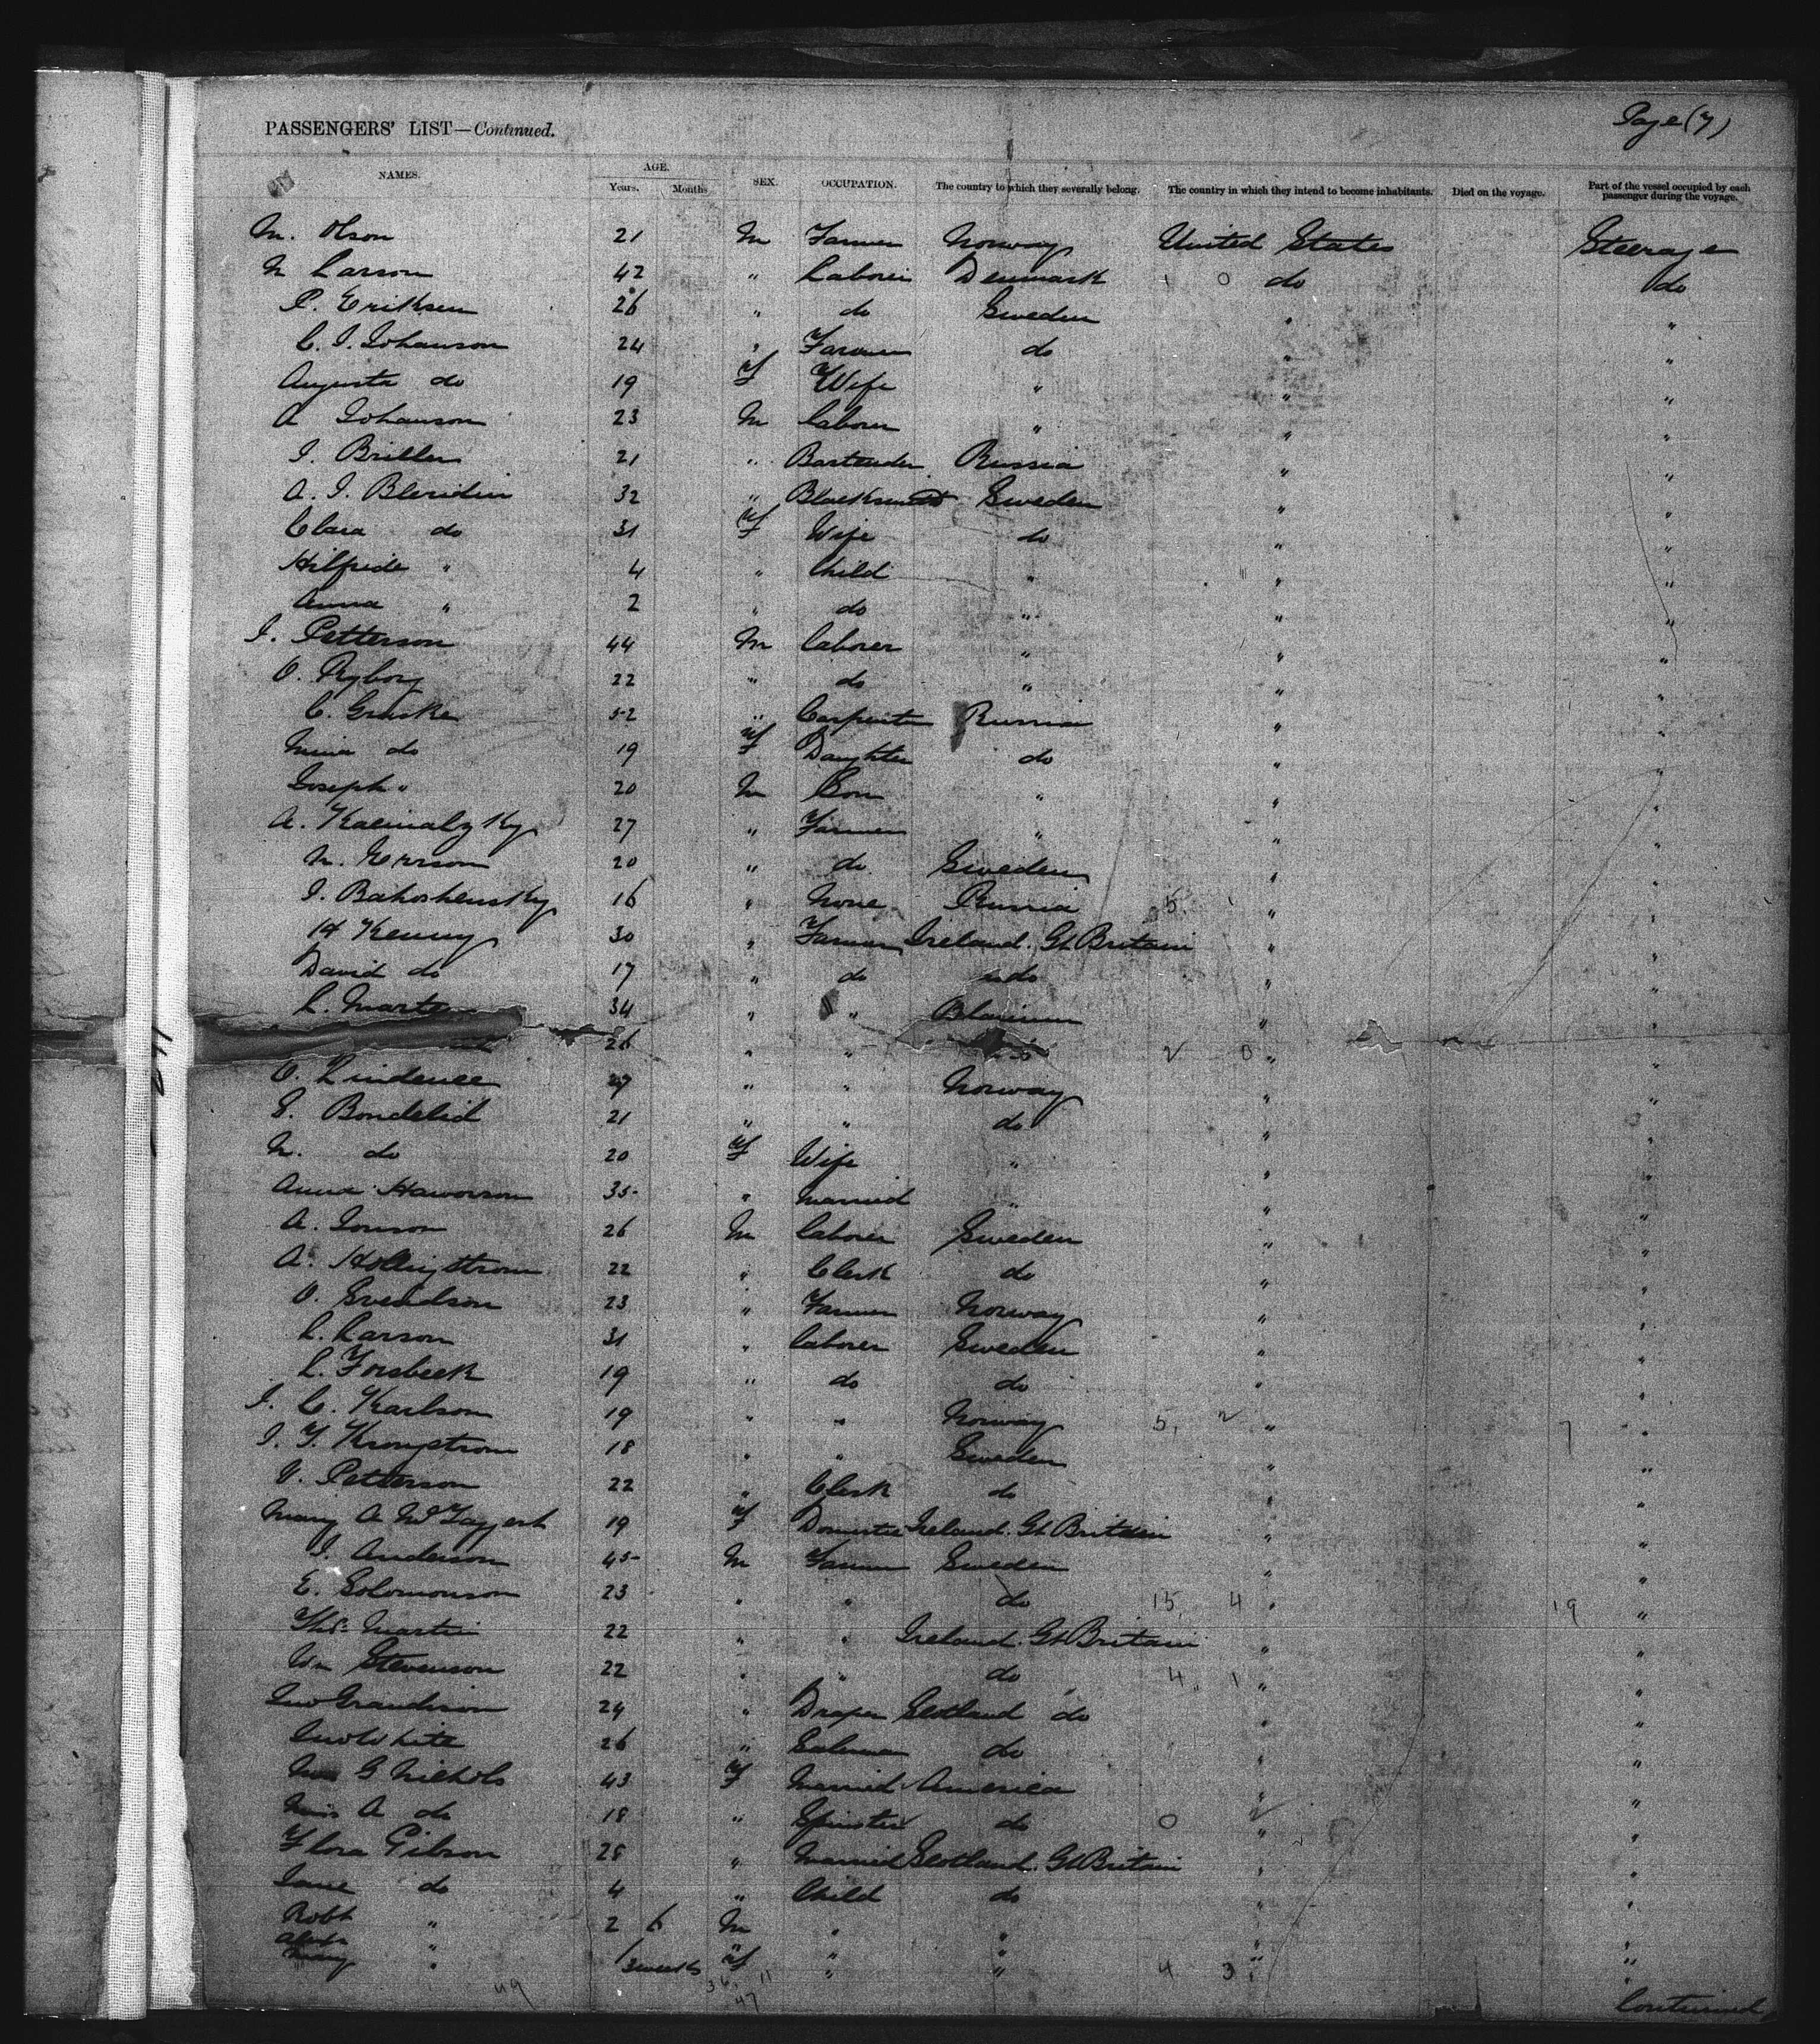 Page (7)
PASSENGERS' LIST—Continued.
NAMES. AGE. Years. Months SEX. OCCUPATION. The country to which they severally belong. The country in which they intend to become inhabitants. Died on the voyage. Part of the vessel occupied by each passenger during the voyage.
M. Olson 21 M Farmer Norway United States Steerage
N Larson 42 " Laborer Denmark 1 0 do do
P. Eriksen 26 " do Sweden " "
C. J. Johanson 24 " Farmer do " "
Augusta do 19 F Wife " " "
A Johanson 23 M Laborer " " "
J. Briller 21 " Bartender Russia " "
A. J. Bleridin 32 " Blacksmith Sweden " "
Clara do 31 F Wife do " "
Hilfride " 4 " Child " " "
Anna " 2 " do " " "
J. Petterson 44 M Laborer " " "
O. Ryborg 22 " do " " "
C. Gruske 52 " Carpenter Russia " "
Mina do 19 F Daughter do " "
Joseph " 20 M Son " " "
A. 27 " Farmer " " "
N. Errson 20 " do Sweden " "
J. 16 " None Russia 5, 1 " "
H Kenny 30 " Farmer Ireland. Gt Britain " "
David do 17 " do do " "
L. 34 " " " "
26 " " do 2 0 " "
O. Lindenee " " Norway " "
E. Bondelid 21 " " do " "
N. do 20 F Wife " " "
Anna Haworson 35 " Married " " "
A. Jonson 26 M Laborer Sweden " "
A. 22 " Clerk do " "
O. Svendson 23 " Farmer Norway " "
L. Larson 31 " Laborer Sweden " "
L. Forsbeck 19 " do do " "
J. C. Karlson 19 " " Norway 5, 2 " 7 "
J. F. Krongstrom 18 " " Sweden " "
V. Petterson 22 " Clerk do " "
Mary A McTaggert 19 F Domestic Ireland. Gt Britain " "
J. Anderson 45 M Farmer Sweden " "
E. Solomonson 23 " " do 15, 4 " 19 "
Thos. Martin 22 " " Ireland. Gt Britain " "
Wm Stevenson 22 " " do 4, 1 " "
Jno Grandison 24 " Draper Scotland do " "
Jno White 26 " Salesman do " "
Mrs G Nichols 43 F Married America " "
Miss A do 18 " Spinster do 0 2 " "
Flora Gibson 28 " Married Scotland. Gt Britain " "
Jane do 4 " Child do " "
Robt " 2 6 M " " " "
Mary " 3 weeks F " " 4 3 " "
49 36, 11
47
Continued
241